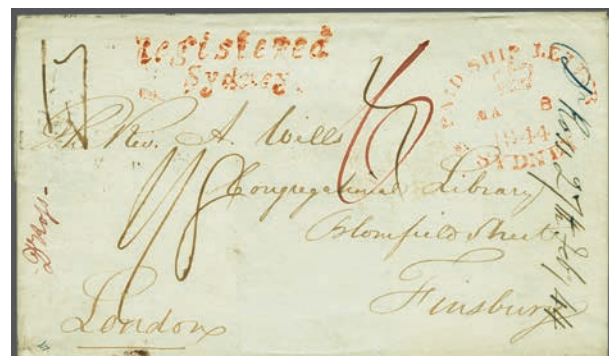 registered
Sydney
PAID SHIP LETTER
MA 8
1844
SYDNEY
The Rev. A. Wills
Congregational Library
Blomfield Street
Finsbury
London
Dr Ross
Dr Ross 27th Feb/44
6
1/8